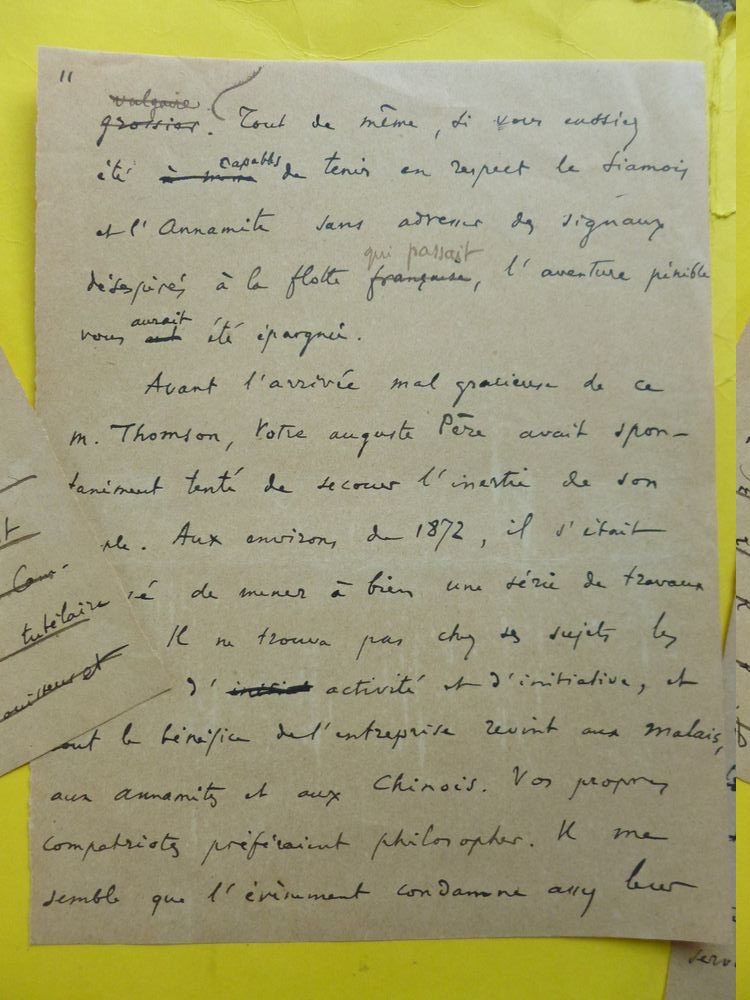 11
vulgaire
grossier. Tout de même, si vous eussiez
été à même capables de tenir en respect le Siamois
et l'Annamite sans adresser des signaux
qui passait
désespérés à la flotte française, l'aventure pénible
aurait
vous été épargnée.
Avant l'arrivée mal gracieuse de ce
M. Thomson, Votre auguste Père avait spon-
tanément tenté de secouer l'inertie de son
ple. Aux environs de 1872, il s'était
sé de mener à bien une série de travaux
Il ne trouva pas chez ses sujets les
d' activité et d'initiative, et
out le bénéfice de l'entreprise revint aux Malais,
aux annamites et aux Chinois. Vos propres
compatriotes préféraient philosopher. Il me
semble que l'évènement condamne assez leur
tutélaire
serv